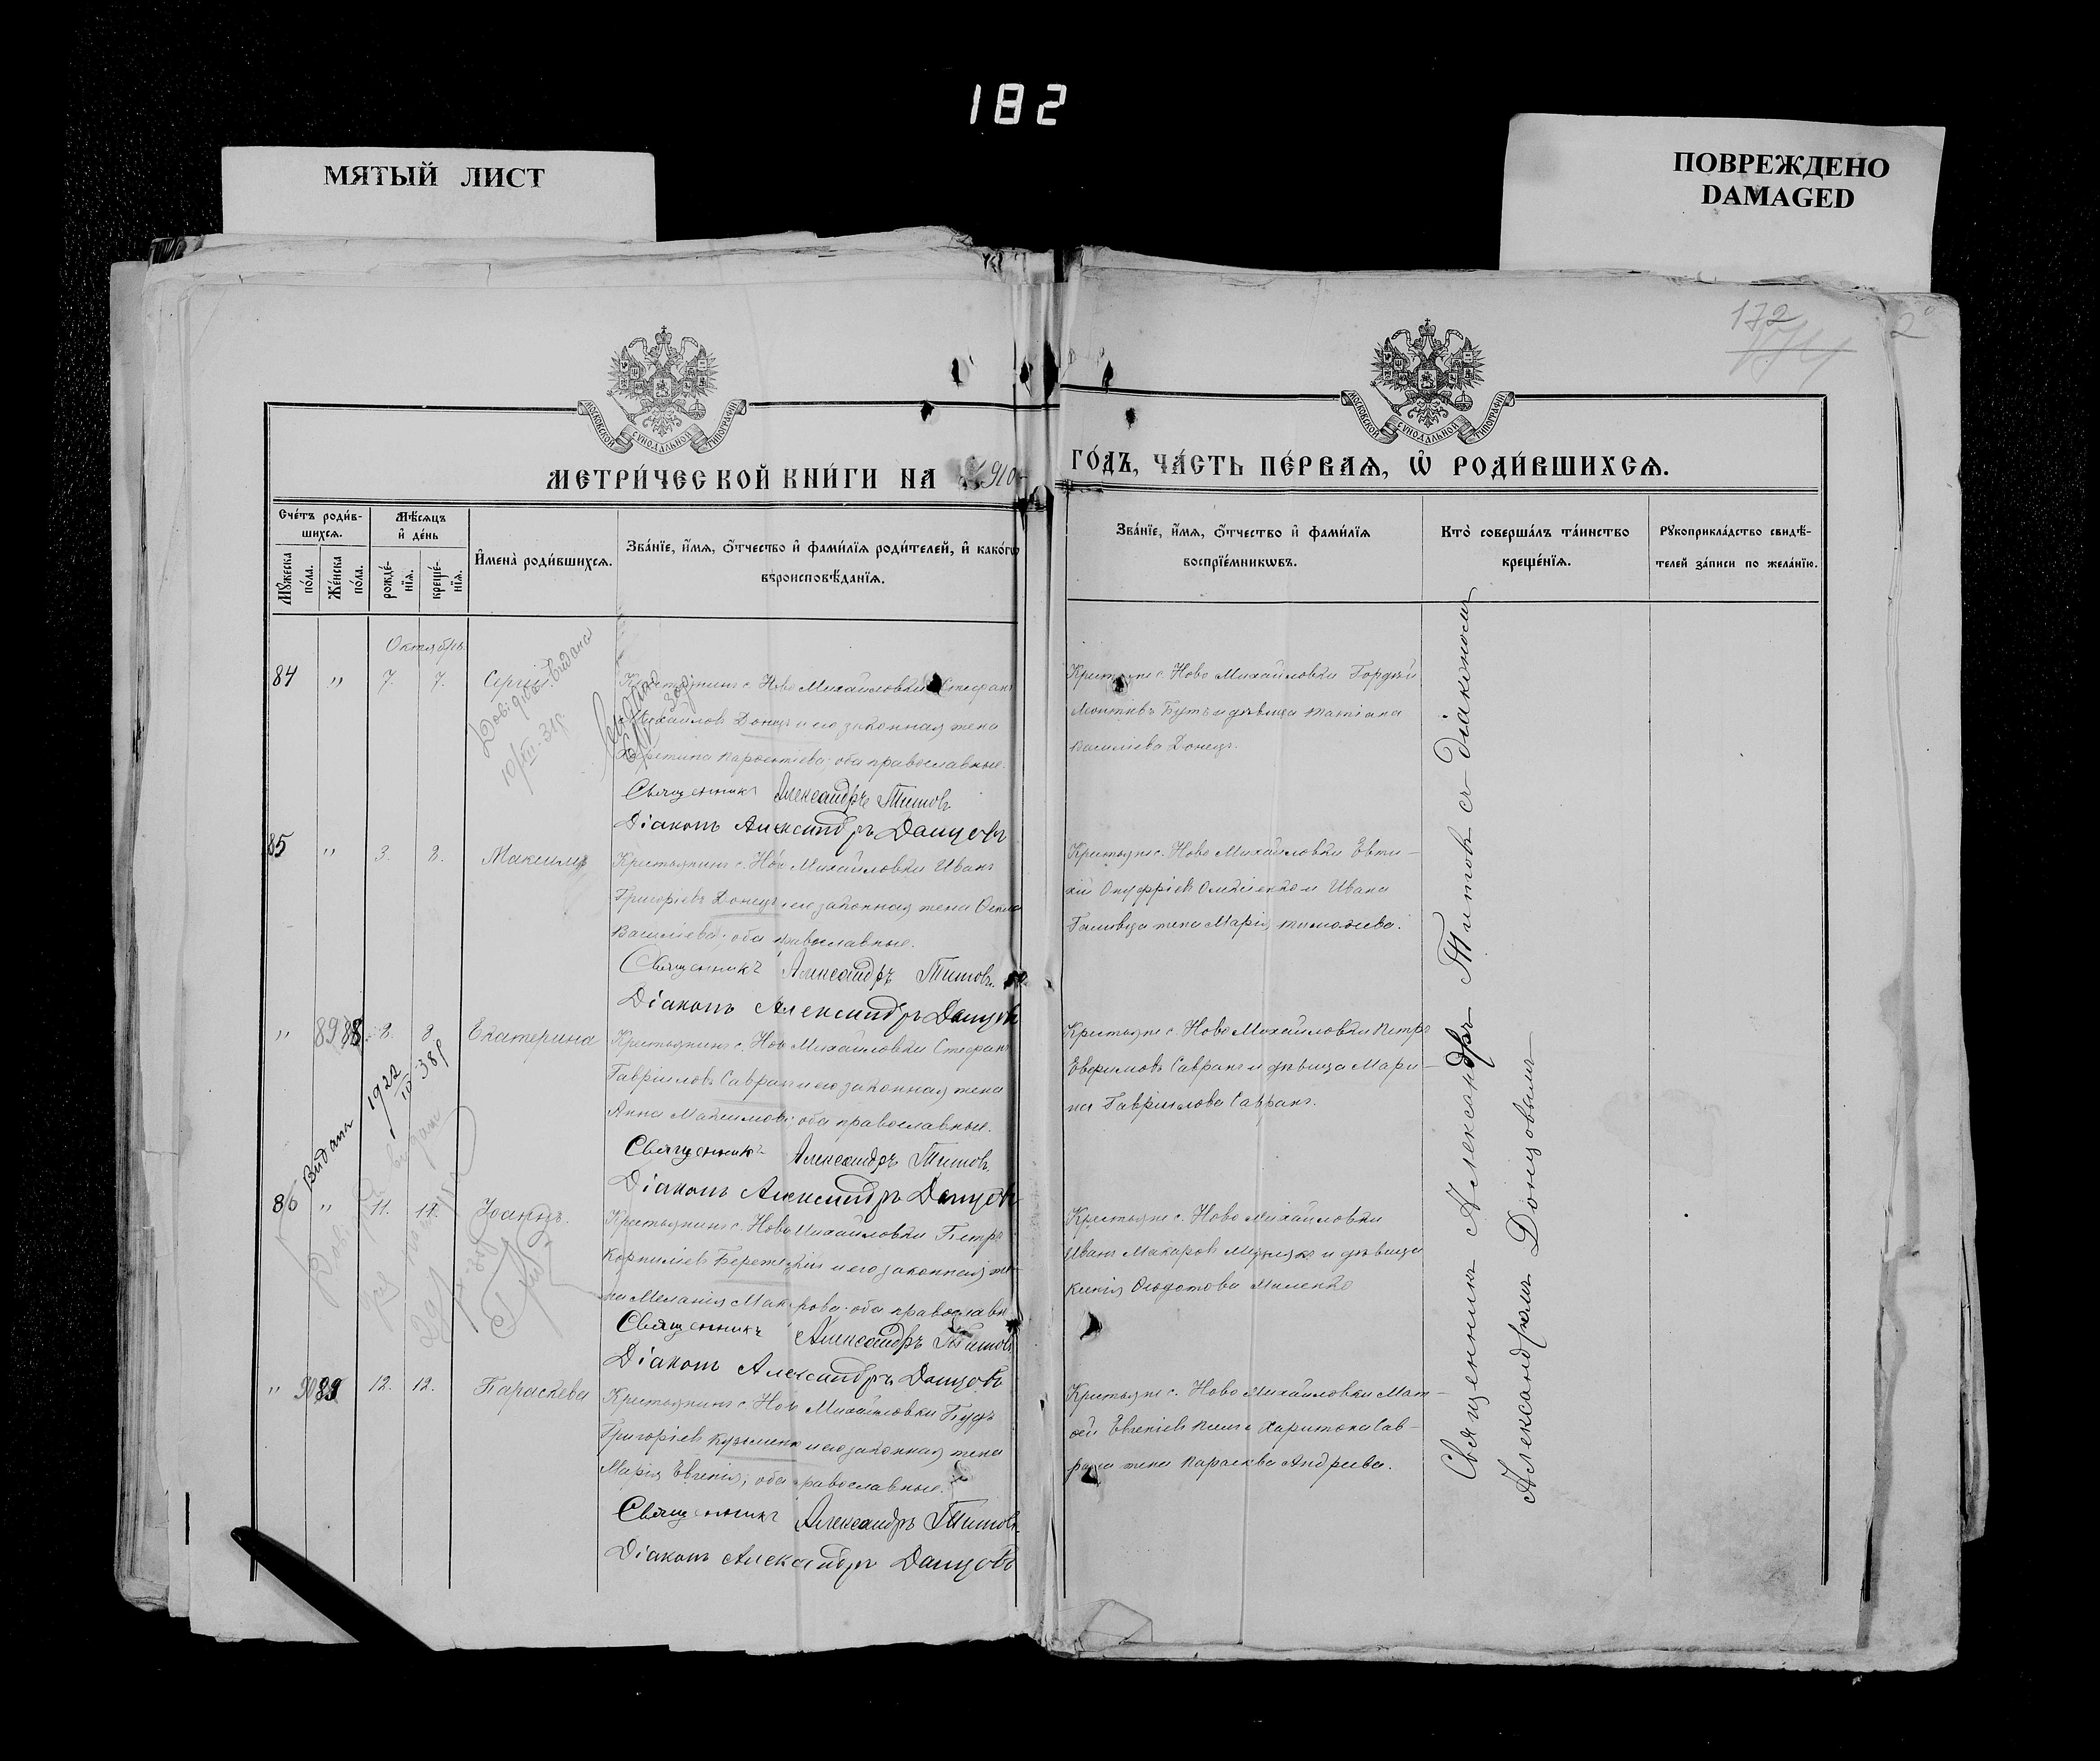 182
МЯТЫЙ ЛИСТ
ПОВРЕЖДЕНО
DAMAGED
172
174
2
МОСКОВСКОЙ СУНОДАЛЬНОЙ ТИПОГРАФІИ
МОСКОВСКОЙ СУНОДАЛЬНОЙ ТИПОГРАФІИ
МЕТРИ́ЧЕСКОЙ КНИ́ГИ НА 1910
ГО́ДЪ, ЧА́СТЬ ПЕ́РВАѦ, Ѿ РОДИ́ВШИХСѦ.
Сче́тъ роди́в-
шихсѧ.
Мꙋ́жеска по́ла.
Же́нска по́ла.
Мѣ́сѧцъ
и҆ де́нь
рожде́-
нїѧ.
креще́-
нїѧ.
И҆мена̀ роди́вшихсѧ.
Зва́нїе, и҆́мѧ, ѻ҆́тчество и҆ фамѝлїѧ роди́телей, и҆ како́гѡ
вѣроисповѣ́данїѧ.
Зва́нїе, и҆́мѧ, ѻ҆́тчество и҆ фамѝлїѧ
воспрїе́мникѡвъ.
Кто̀ соверша́лъ та́инство
креще́нїѧ.
Рꙋкоприкла́дство свидѣ́-
телей за́писи по жела́нїю.
Октябрь.
84 " 7. 7. Сергій
Довідка видана
10/VII-31р.
Крестьянинъ с. Ново Михайловки Стефанъ
Михайловъ Донецъ и его законная жена
Христина Парфентіева; оба православные.
Священникъ Александръ Титовъ
Діаконъ Александръ Донцовъ
Крестьяне с. Ново Михайловки Гордѣй
Бутъ и дѣвица Татіана
Василіева Донецъ.
85 " 3. 8. Максимъ
Крестьянинъ с. Ново Михайловки Иванъ
Григоріевъ Донецъ и его законная жена
Василіева; оба православные.
Священникъ Александръ Титовъ.
Діаконъ Александръ Донцовъ
Крестьяне с. Ново Михайловки Евти-
хій Онуфріевъ и Ивана
жена Марія Тимофеева.
" 89 88 8. 8. Екатерина
Крестьянинъ с. Ново Михайловки Стефанъ
Гавріиловъ Савранъ и его законная жена
Анна Максимова; оба православные.
Священникъ Александръ Титовъ
Діаконъ Александръ Донцовъ
Крестьяне с. Ново Михайловки Петръ
Евфимовъ Савранъ и дѣвица Мари-
на Гавриилова Савранъ.
Видана 1922
86 " 11. 11. Іоаннъ.
Крестьянинъ с. Ново Михайловки Петръ
Корниліевъ и его законная же-
на Меланія Макарова; оба православн.
Священникъ Александръ Титовъ
Діаконъ Александръ Донцовъ
Крестьяне с. Ново Михайловки
Иванъ Макаровъ и дѣвица
Ксенія Миленко
" 90 89 12. 12. Параскева
Крестьянинъ с. Ново Михайловки
Григоріевъ Кузьменко и его законная жена
Марія Евгенія; оба православные.
Священникъ Александръ Титовъ
Діаконъ Александръ Донцовъ
Крестьяне с. Ново Михайловки Мат-
фей Евгеніевъ и Харитона Сав-
рана жена Параскева Андреева.
Священникъ Александръ Титовъ съ діакономъ
Александромъ Донцовымъ